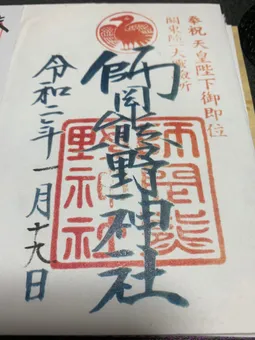 奉祝天皇陛下御即位
関東随一大霊験所
師岡熊野神社
師岡熊野神社
令和二年一月十九日